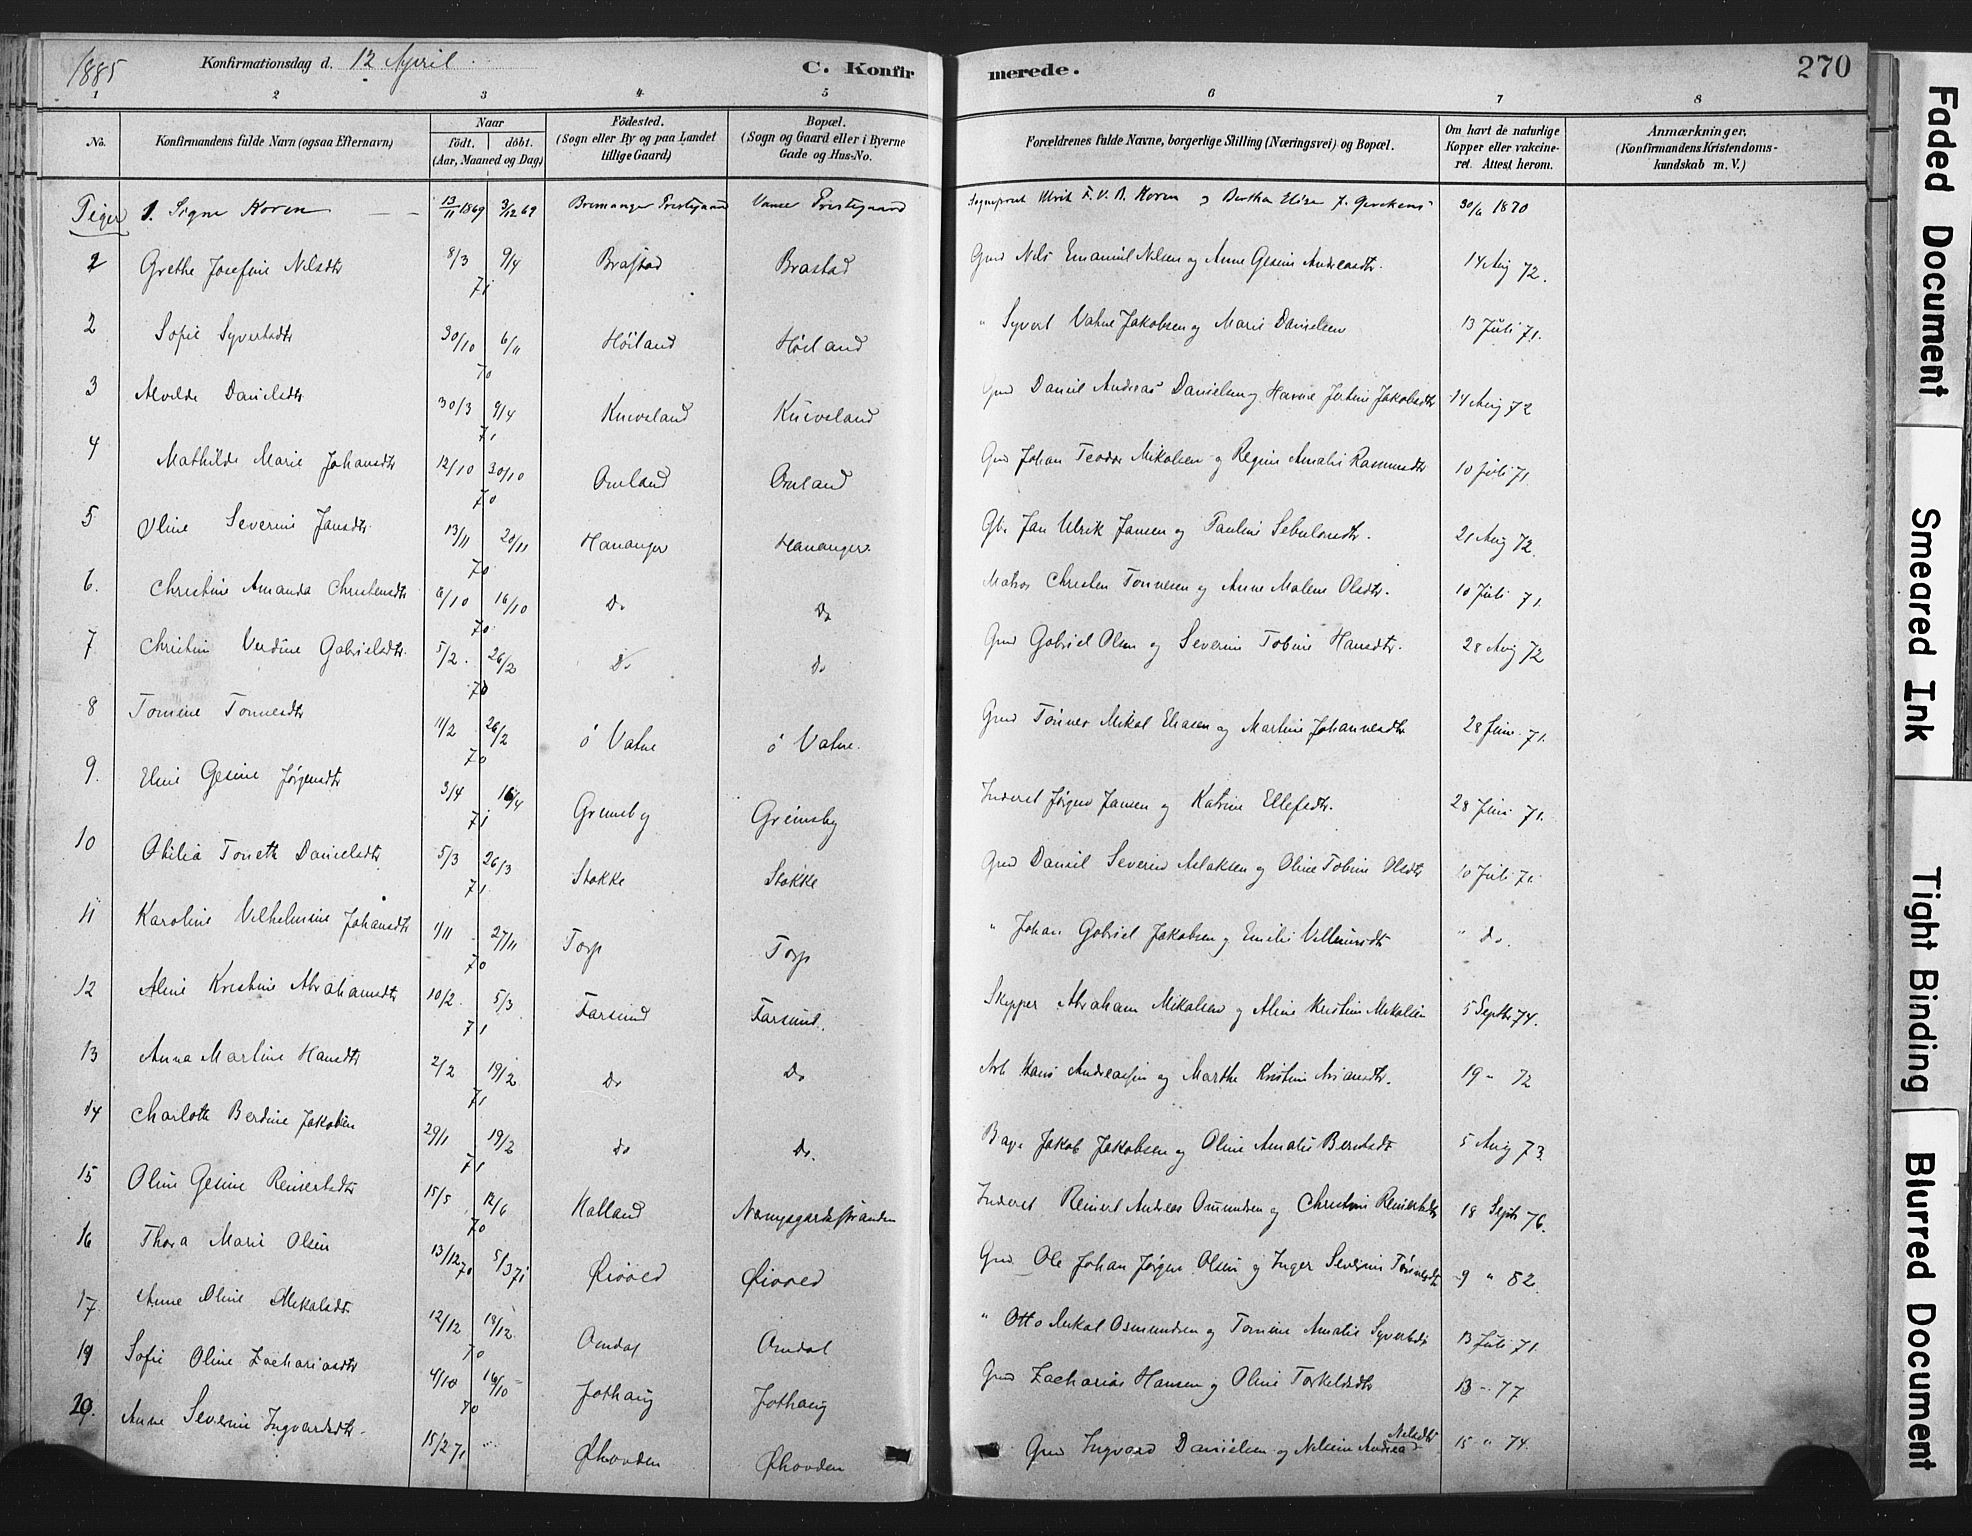 1885 Konfirmationsdag d. 12 April. C. Konfirmerede. 270
1 2 3 4 5 6 7 8
No. Konfirmandens fulde Navn (ogsaa Efternavn) Naar födt. döbt. (Aar, Maaned og Dag) Födested. (Sogn eller By og paa Landet tillige Gaard) Bopæl. (Sogn og Gaard eller i Byerne Gade og Hus-No. Forældrenes fulde Navne, borgerlige Stilling (Næringsvei) og Bopæl. Om havt de naturlige Kopper eller vakcineret. Attest herom. Anmærkninger. (Konfirmandens Kristendomskundskab m. V.)
Piger 1. Signe Koren 13/11 1869 3/12 69 Bremanger Prestegaard Vanse Prestegaard Sogneprest Ulrik F. V. A. Koren og Berthe Elise f. Gerckens 30/6 1870
2 Grethe Josefine Nilsdtr 8/3 9/4 71 Brastad Brastad Grd Nels Emanuel Nilsen og Anne Gesine Andreasdtr. 14 Aug 72.
2 Sofie Syvertsdtr 30/10 6/11 70 Höiland Höiland " Syvert Vatne Jakobsen og Marie Danielsen 13 Juli 71.
3 Alvilde Danielsdtr 30/3 9/4 71 Kueveland Kueveland Grd Daniel Andreas Danielsen og Hanne Jakobsdtr 14 Aug 72
4 Mathilde Marie Johansdtr 12/10 30/10 70 Omland Omland Grd Johan Teodor Mikalsen og Regine Amalie Rasmusdtr 10 Juli 71.
5 Oline Severine Jansdtr 13/11 20/11 70 Hananger Hananger. Gbr. Jan Ulrik Jansen og Pauline Sebulonsdtr. 21 Aug 72.
6. Christine Amanda Christensdtr 6/10 16/10 70. Do Do Matros Christen Tonnesen og Anne Malene Olsdtr. 10 Juli 71.
7 Christine Verdine Gabrielsdtr. 5/2. 26/2 70 Do Do Grd Gabriel Olsen og Severine Tobine Hansdtr. 28 Aug 72
8 Tomine Tonnesdtr 11/2 26/2 70 ö Vatne ö Vatne. Grd Tönnes Mikal Eliasen og Martine Johannesdtr 28 Juni 71.
9. Eline Gesine Jørgensdtr 3/4 16/4 71 Grimsby Grimsby Inderst Jørgen Jansen og Katrine Ellefsdtr. 28 Juni 71.
10 Otilia Tonette Danielsdtr 5/3 26/3 71. Stokke Stokke Grd Daniel Severin Aslaksen og Oline Tobine Olsdtr 10 Juli 71.
11 Karoline Vilhelmine Johansdtr 1/11 27/11 70 Torp Torp " Johan Gabriel Jakobsen og Emilie Villumsdtr " do.
12 Aline Kristine Abrahamsdtr 10/2. 5/3 71 Farsund Farsund. Skipper Abraham Mikalsen og Aline Kristine Mikalsen 5 Septbr 74.
13 Anna Martine Hansdtr 2/2 19/2 71 Do Do Arb Hans Andreassen og Marthe Kristine Arjansdtr. 19 - 72
14 Charlotte Berdine Jakobsen 29/1 19/2 71 do Do. Jakob Jakobsen og Oline Amalie Berntsdtr 5 Aug 73.
15 Oline Gesine Reinertsdtr 15/5 12/6 70 Kalland Inderst Reinert Andreas Osmundsen og Christine Reinertsdtr 18 Septr 76.
16 Thora Marie Olsen 13/12 70 5/3 71 Grd Ole Johan Jørgen Olsen og Inger Severine Tönnesdtr 9 " 82.
17. Anne Oline Mikalsdtr 12/12 18/12. 70 Omdal Omdal " Otto Mikal Osmundsen og Tomine Amalie Syvertsdtr 13 Juli 71.
19 Sofie Oline Zachariasdtr 4/10 16/10 70 Jothaug Jothaug Grd Zacharias Hansen og Oline Torkelsdtr 13 - 77
20. Anne Severine Ingvardsdtr. 15/2 71 Ørhovden Ørhovden Grd Ingvard Danielsen og Andrea Nelsdtr 15 " 74.
Faded Document
Smeared Ink
Tight Binding
Blurred Document